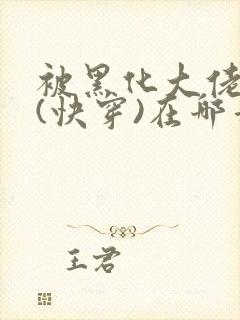 被黑化大佬
(快穿)在哪
王君